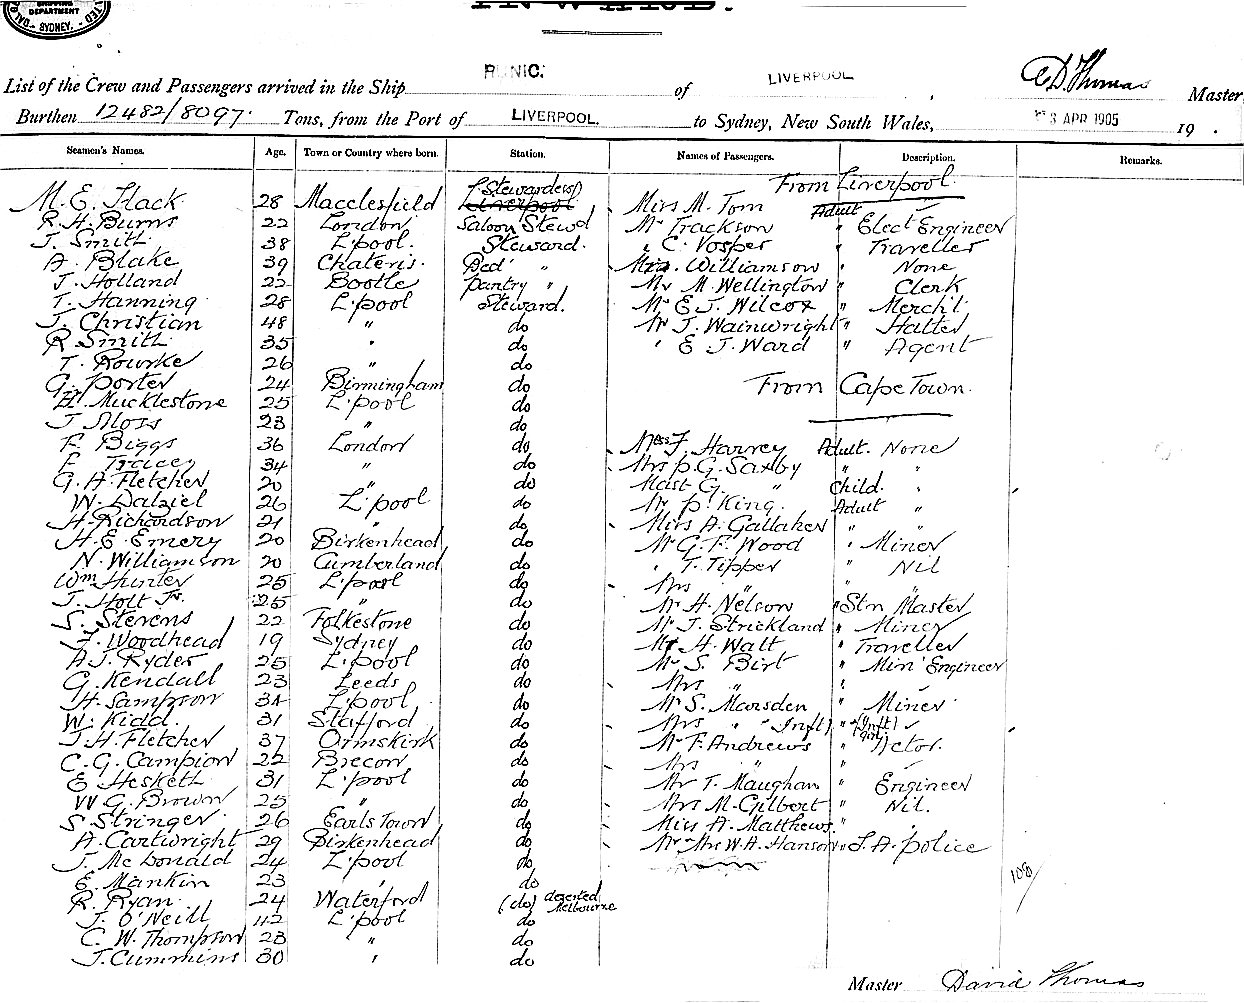 DEPARTMENT
SYDNEY.
INWARD.
List of the Crew and Passengers arrived in the Ship RUNIC. of LIVERPOOL, Master
Burthen 12482/8097. Tons, from the Port of LIVERPOOL. to Sydney, New South Wales, APR 1905 19 .
Seamen's Names. Age. Town or Country where born. Station. Names of Passengers. Description. Remarks.
From Liverpool.
M. E. Flack 28 Macclesfield Stewardess Liverpool Miss M. Tom Adult
R. H. Burns 22 London Saloon Stewd Mr Trackson " Elect Engineer
J. Smith 38 L'pool. Steward. " C. Vosper " Traveller
A. Blake 39 Chateris. Bed' " Mrs. Williamson " None
J. Holland 22 Bootle Pantry " Mr M. Wellington " Clerk
T. Hanning 28 L'pool Steward. Mr E J. Wilcox " Merch't
J. Christian 48 " do Mr J. Wainwright " Hatter
R Smith 35 " do " E J. Ward " Agent
T. Rourke 26 " do
G. Porter 24 Birmingham do From Cape Town.
H. Mucklestone 25 L'pool do
J Moss 23 " do
F Biggs 36 London do F. Harvey Adult. None
F Tracey 34 " do Mrs P. G. Saxby " "
G. A. Fletcher 20 " do Mast G. " Child. "
W. Dalziel 26 L'pool do Mr P. King. Adult "
H. Richardson 21 " do Miss A. Gallaher " "
H. E. Emery 20 Birkenhead do Mr G. F. Wood " Miner
N. Williamson 20 Cumberland do " T. Tipper " Nil
Wm Hunter 25 L'pool do Mrs " " "
J. Holt Jr. 25 " do Mr H. Nelson " Stn Master
S. Stevens 22 Folkestone do Mr J. Strickland " Miner
J. Woodhead 19 Sydney do Mr H. Walt " Traveller
A. J. Ryder 25 L'pool do Mr S. Birt " Min' Engineer
G. Kendall 23 Leeds do Mrs " "
H. Sampson 34 L'pool do Mr S. Marsden " Miner
W. Kidd. 31 Stafford do Mrs " " Inft) " (Inft) girl
J. H. Fletcher 37 Ormskirk do Mr F. Andrews " Actor.
C. G. Campion 22 Brecon do Mrs " "
E Hesketh 31 L'pool do Mr T. Maughan " Engineer
W G. Brown 25 " do Mrs M. Gilbert " Nil.
S Stringer 26 Earls Town do Miss A. Matthews. " "
A. Cartwright 29 Birkenhead do Mr + Mrs W. H. Hanson " S. A. Police
J. Mc Donald 24 L'pool do
E. Mankin 23 " do 108/
R. Ryan 24 Waterford (do) deserted Melbourne
J. O'Neill 42 L'pool do
C. W. Thompson 23 " do
J. Cummins 30 " do
Master David Thomas